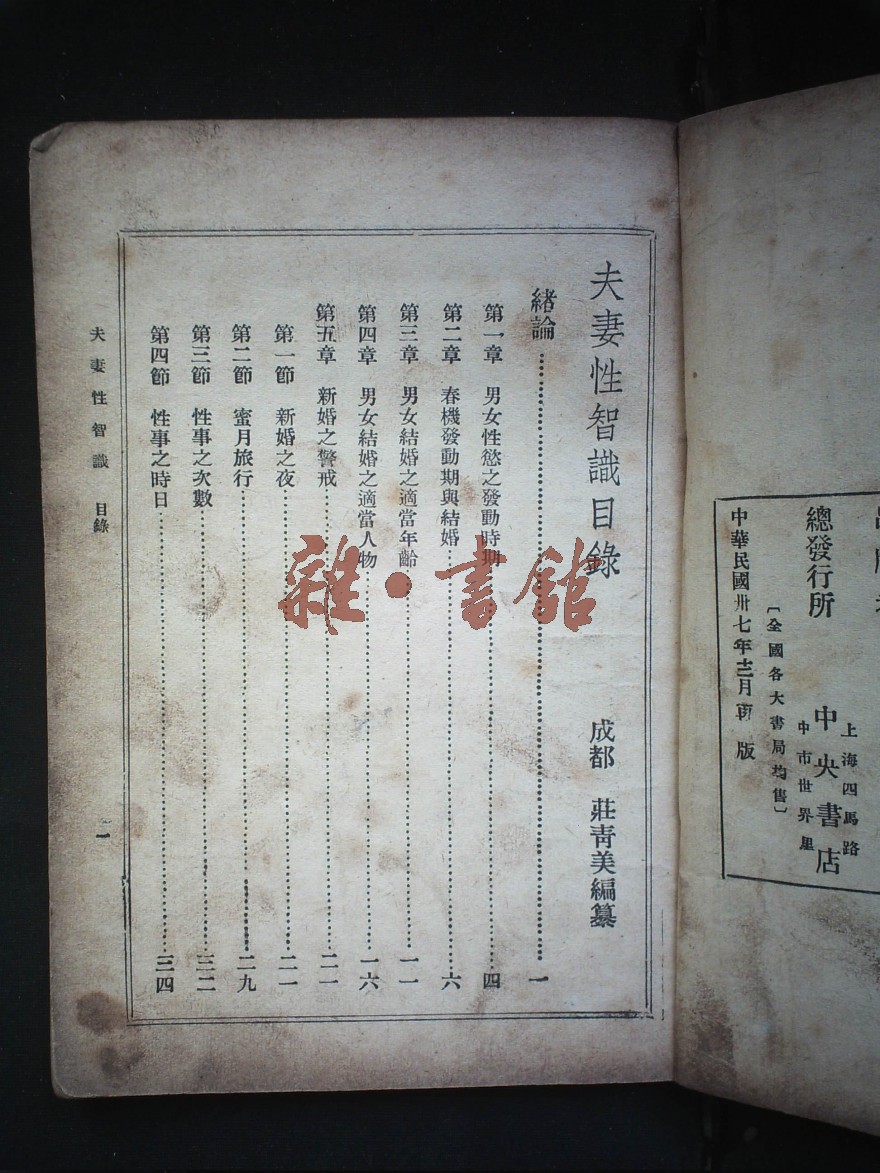 總發行所 中央書店
上海四馬路
中市世界里
〔全國各大書局均售〕
中華民國卅七年十二月再版
夫妻性智識目錄
成都 莊靑美編纂
緒論……一
第一章 男女性慾之發動時期……四
第二章 春機發動期與結婚……六
第三章 男女結婚之適當年齡……一一
第四章 男女結婚之適當人物……一六
第五章 新婚之警戒……二一
第一節 新婚之夜……二一
第二節 蜜月旅行……二九
第三節 性事之次數……三二
第四節 性事之時日……三四
夫妻性智識 目錄
一
雜·書館